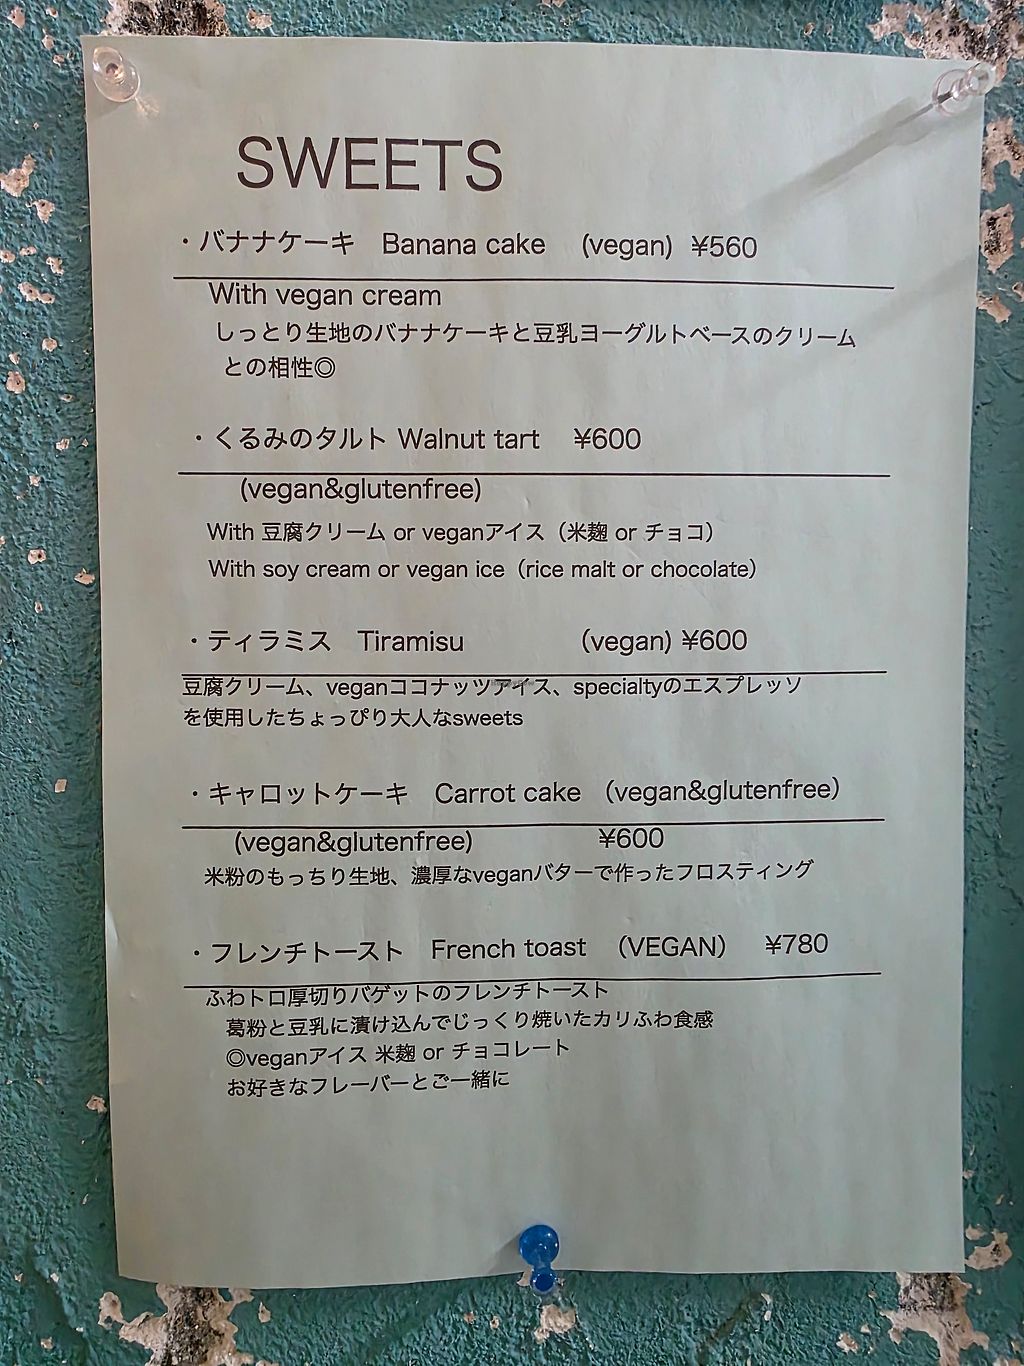 SWEETS
・バナナケーキ Banana cake (vegan) ¥560
With vegan cream
しっとり生地のバナナケーキと豆乳ヨーグルトベースのクリーム
との相性◎
・くるみのタルト Walnut tart ¥600
(vegan&glutenfree)
With 豆腐クリーム or veganアイス（米麹 or チョコ）
With soy cream or vegan ice（rice malt or chocolate）
・ティラミス Tiramisu (vegan) ¥600
豆腐クリーム、veganココナッツアイス、specialtyのエスプレッソ
を使用したちょっぴり大人なsweets
・キャロットケーキ Carrot cake （vegan&glutenfree）
(vegan&glutenfree) ¥600
米粉のもっちり生地、濃厚なveganバターで作ったフロスティング
・フレンチトースト French toast （VEGAN） ¥780
ふわトロ厚切りバゲットのフレンチトースト
葛粉と豆乳に漬け込んでじっくり焼いたカリふわ食感
◎veganアイス 米麹 or チョコレート
お好きなフレーバーとご一緒に